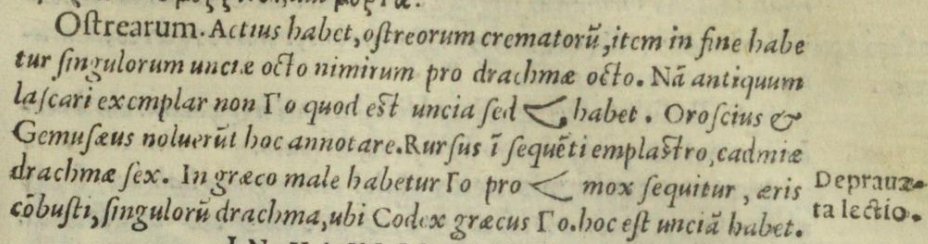 Ostrearum. Actius habet, ostreorum crematorũ, item in fine habe
tur singulorum unciæ octo nimirum pro drachmæ octo. Nã antiquum
lascari exemplar non Γo quod est uncia sed < habet. Oroscius &
Gemusæus noluerũt hoc annotare. Rursus ĩ sequẽti emplastro, cadmiæ
drachmæ sex. In græco male habetur Γo pro < mox sequitur, æris
cõbusti, singulorũ drachma, ubi Codex græcus Γo. hoc est unciã habet.
Deprauæ-
ta lectio.